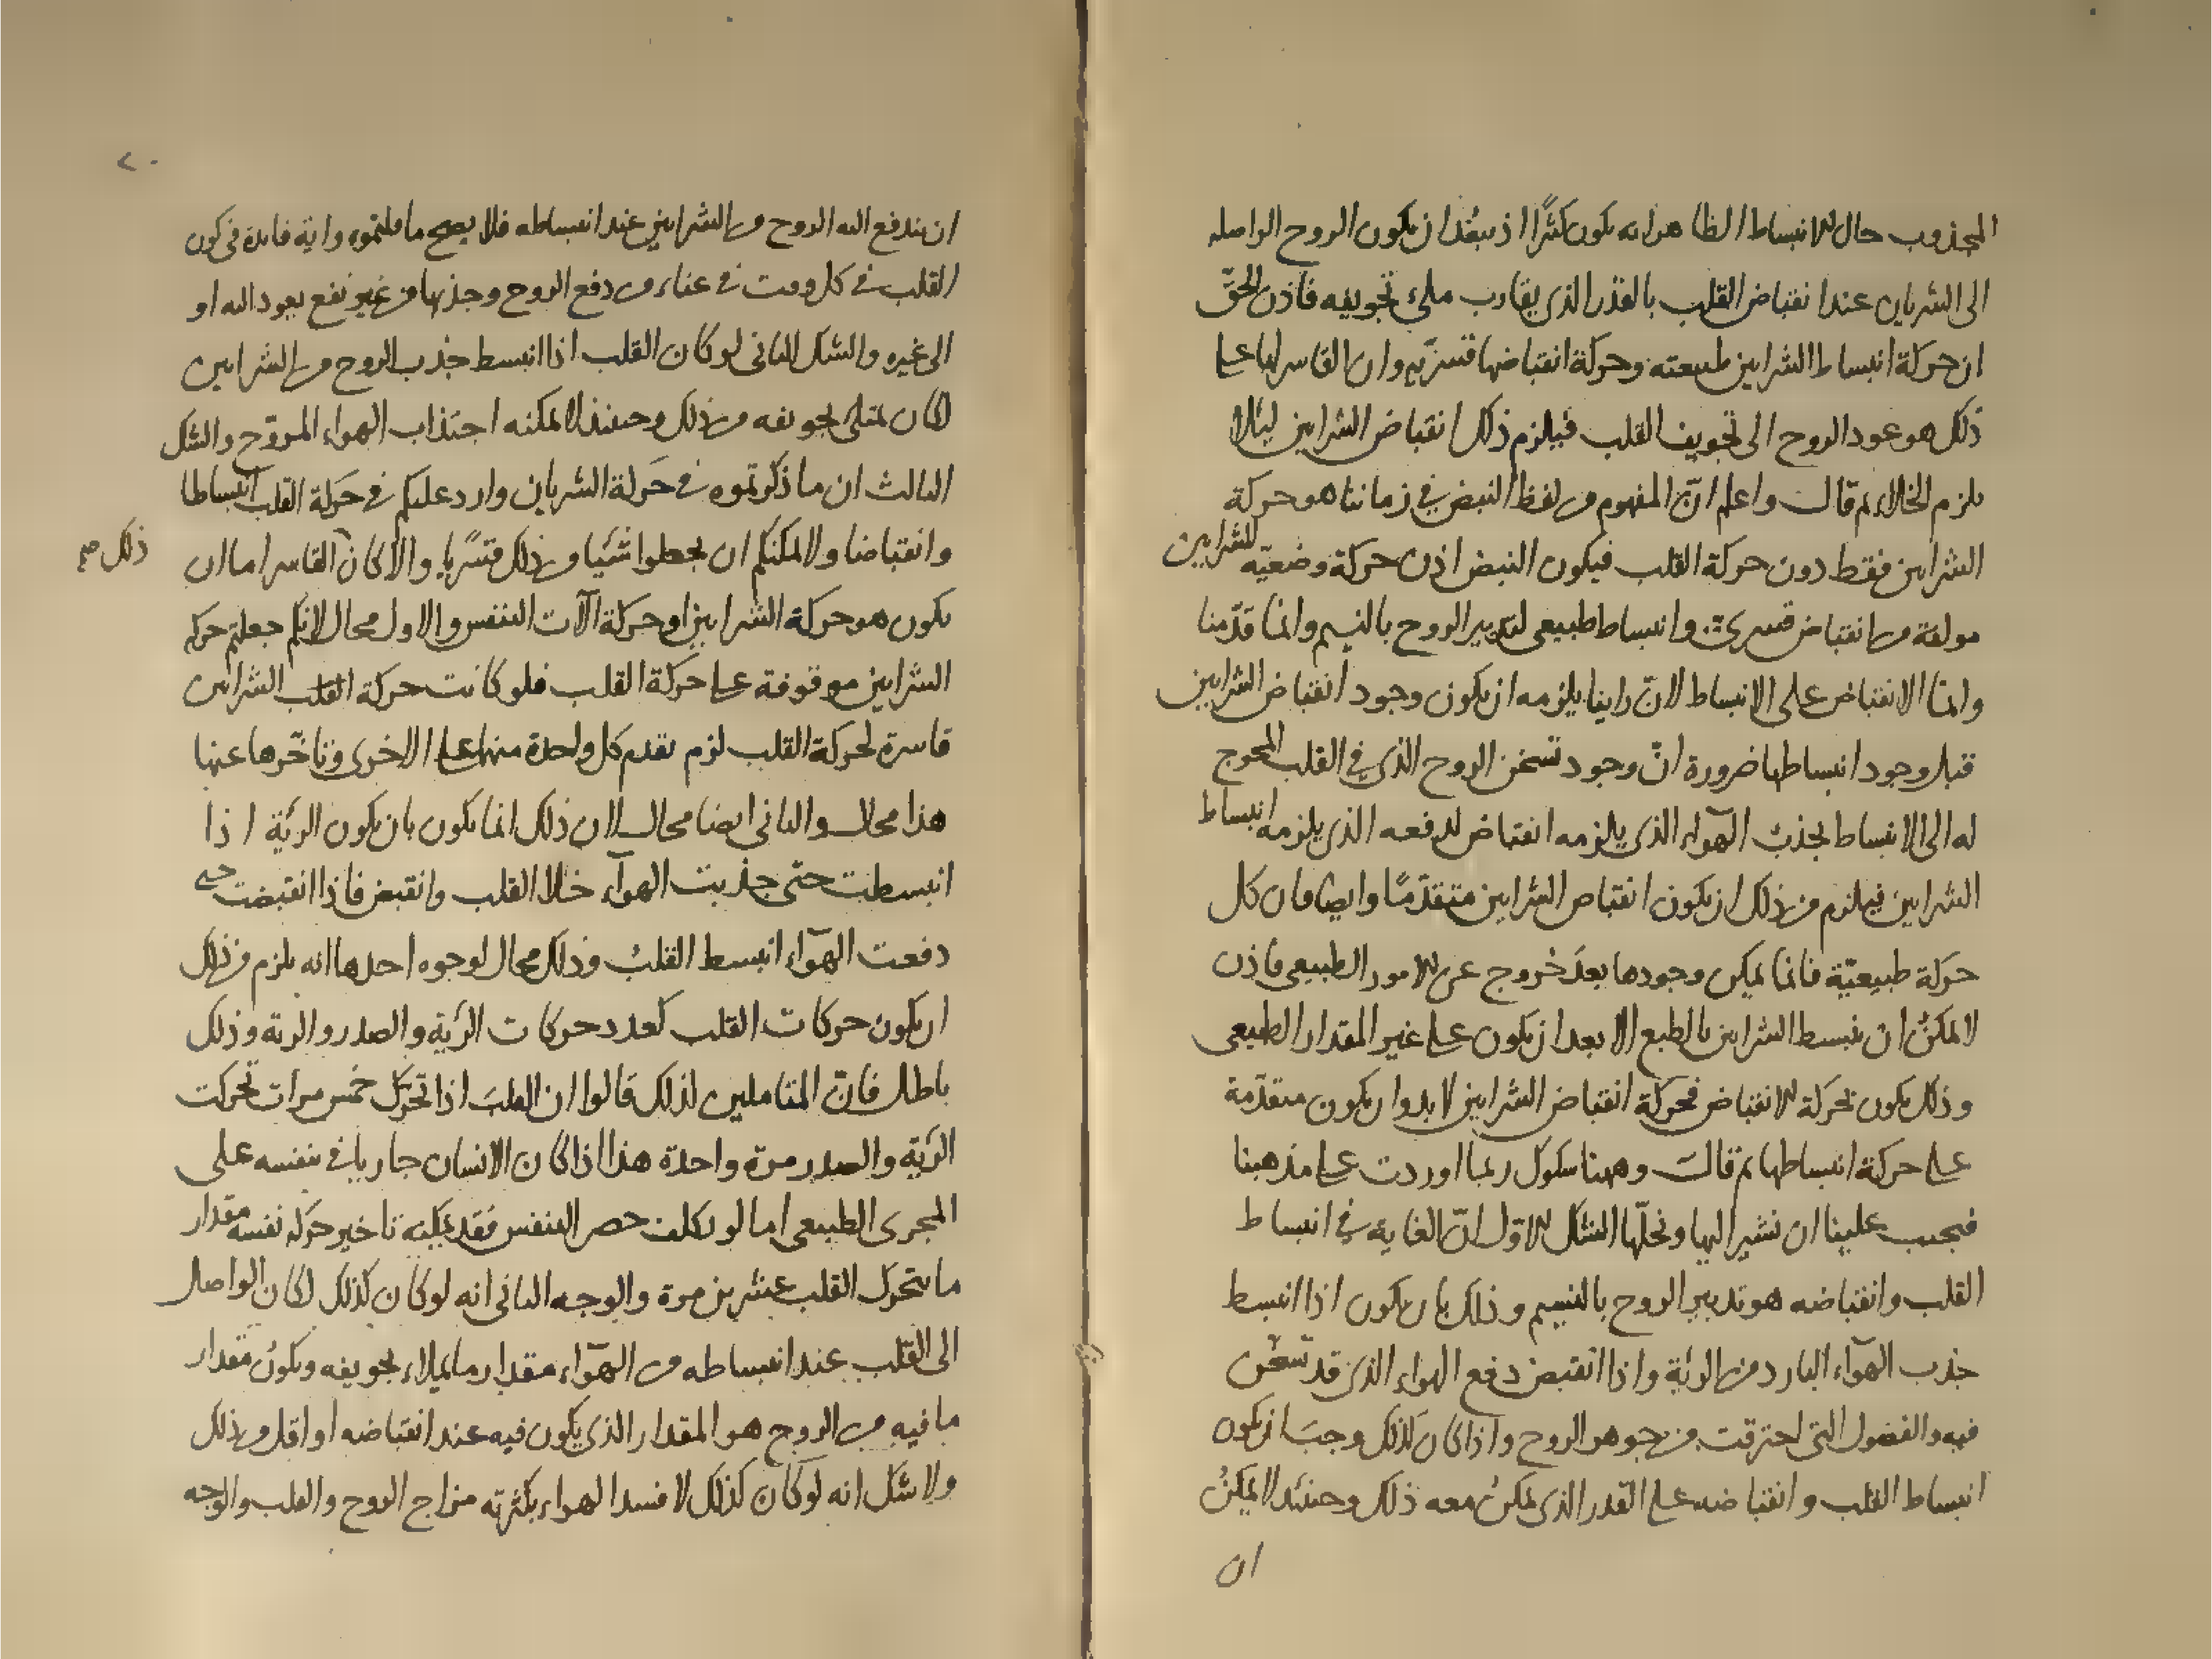 المجذوب حال الانبساط الظاهر انه يكون كثيرًا اذ يبعُد ان يكون الروح الواصله
الى الشريان عند انقباض القلب بالقدر الذى يقارب ملء تجويفه فاذن الحقّ
ان حركة انبساط الشرايين طبيعته وحركة انقباضها قسريّه وان القاسر لها على
ذلك هو عود الروح الى تجويف القلب فيلزم ذلك انقباض الشرايين ليلا
يلزم الخلاء ثم قالـ واعلم انّ المفهوم من لفظ النبض في زماننا هو حركة
الشرايين فقط دون حركة القلب فيكون النبض اذن حركة وضعيّه للشرايين
مولفة من انقباض قسرى وانبساط طبيعى لتدبير الروح بالنسيم وانما قدّمنا
وانما الانقباض على الانبساط لانّ راينا يلزمه ان يكون وجود انقباض الشرايين
قبل وجود انبساطها ضرورة انّ وجود تسخن الروح الذى في القلب المحوج
له الى الانبساط لجذب الهوآء الذى يلزمه انقباض لدفعه الذى يلزمه انبساط
الشرايين فيلزم من ذلك ان يكون انقباض الشرايين متقدّمًا وايضا فان كل
حركة طبيعيّة فانما يمكن وجودها بعدَ خُروج عن الامور الطبيعى فاذن
لا يمكنُ ان ينبسط الشرايين بالطبع الا بعد ان يكون على غير المقدار الطبيعى
وذلك يكون بحركة الانقباض فحركة انقباض الشرايين لابد وان يكون متقدّمة
على حركة انبساطها ثم قالـ وههنا شكوك ربما اوردت على مذهبنا
فيجب علينا ان نشير اليها ونحلّها الشكل الاوّل انّ الغاية في انبساط
القلب وانقباضه هو تدبير الروح بالنسيم وذلك بان يكون اذا انبسط
جذب الهوآء البارد من الرئة واذا انقبض دفع الهواء الذى قد تسخّن
فيه والفضول التى احترقت من جوهر الروح واذا كان كذلك وجبَ ان يكون
انبساط القلب وانقباضه على القدر الذى يمكنُ معه ذلك وحينئذ لا يمكنُ
ان
ان يندفع اليه الروح من الشرايين عند انبساطه فلا يصح ما قلتموه واية فايدة في كون
القلب في كل وقت في عناء من دفع الروح وجذبها من غير نفع يعود اليه او
الى غيره والشكل الثانى لو كان القلب اذا انبسط جذب الروح من الشرايين
لكان يمتلى تجويفه من ذلك وحينئذ لا يمكنه اجتذاب الهواء المروّح والشكل
الثالث ان ما ذكرتموه في حركة الشريان وارد عليكم في حركة القلب انبساطا
وانقباضا ولا يمكنكم ان تجعلوا شيًا من ذلك قسريًا والا لكان القاسر اما ان
ذلك صح
يكون هو حركة الشرايين او حركة آلات التنفس والاول محال لانكم جعلتم حركه
الشرايين موقوفة على حركة القلب فلو كانت حركة القلب الشرايين
قاسرة لحركة القلب لزم تقدم كل واحدة منهما على الاخرى وتاخّرها عنها
هذا محالـ والثانى ايضا محالـ لان ذلك انما يكون بان يكون الرئة اذا
انبسطت حتى جذبت الهوآء خلا القلب وانقبض فاذا انقبضت حتى
دفعت الهوآء انبسط القلبُ وذلك محال لوجوه احدها انه يلزم من ذلك
ان يكون حركات القلب كعدد حركات الرئة والصدر والرئة وذلك
باطل فانّ المتاملين لذلك قالوا ان القلبَ اذا تحرّك خمس مرات تحركت
الرئة والصدر مرة واحدة هذا اذا كان الانسان جاريا في تنفسه على
المجرى الطبيعى اما لو تكلف حصر التنفس فقد يمكنه تاخير حركه نفسه مقدار
ما يتحرك القلب عشرين مرة والوجه الثانى انه لو كان كذلك لكان الواصل
الى القلب عند انبساطه من الهوآء مقدار ما يملاء تجويفه ويكونُ مقدار
ما فيه من الروح هو المقدار الذى يكون فيه عند انقباضه او اقل من ذلك
ولا شك انه لو كان كذلك لافسد الهواء بكثرته مزاج الروح والقلب والوجه